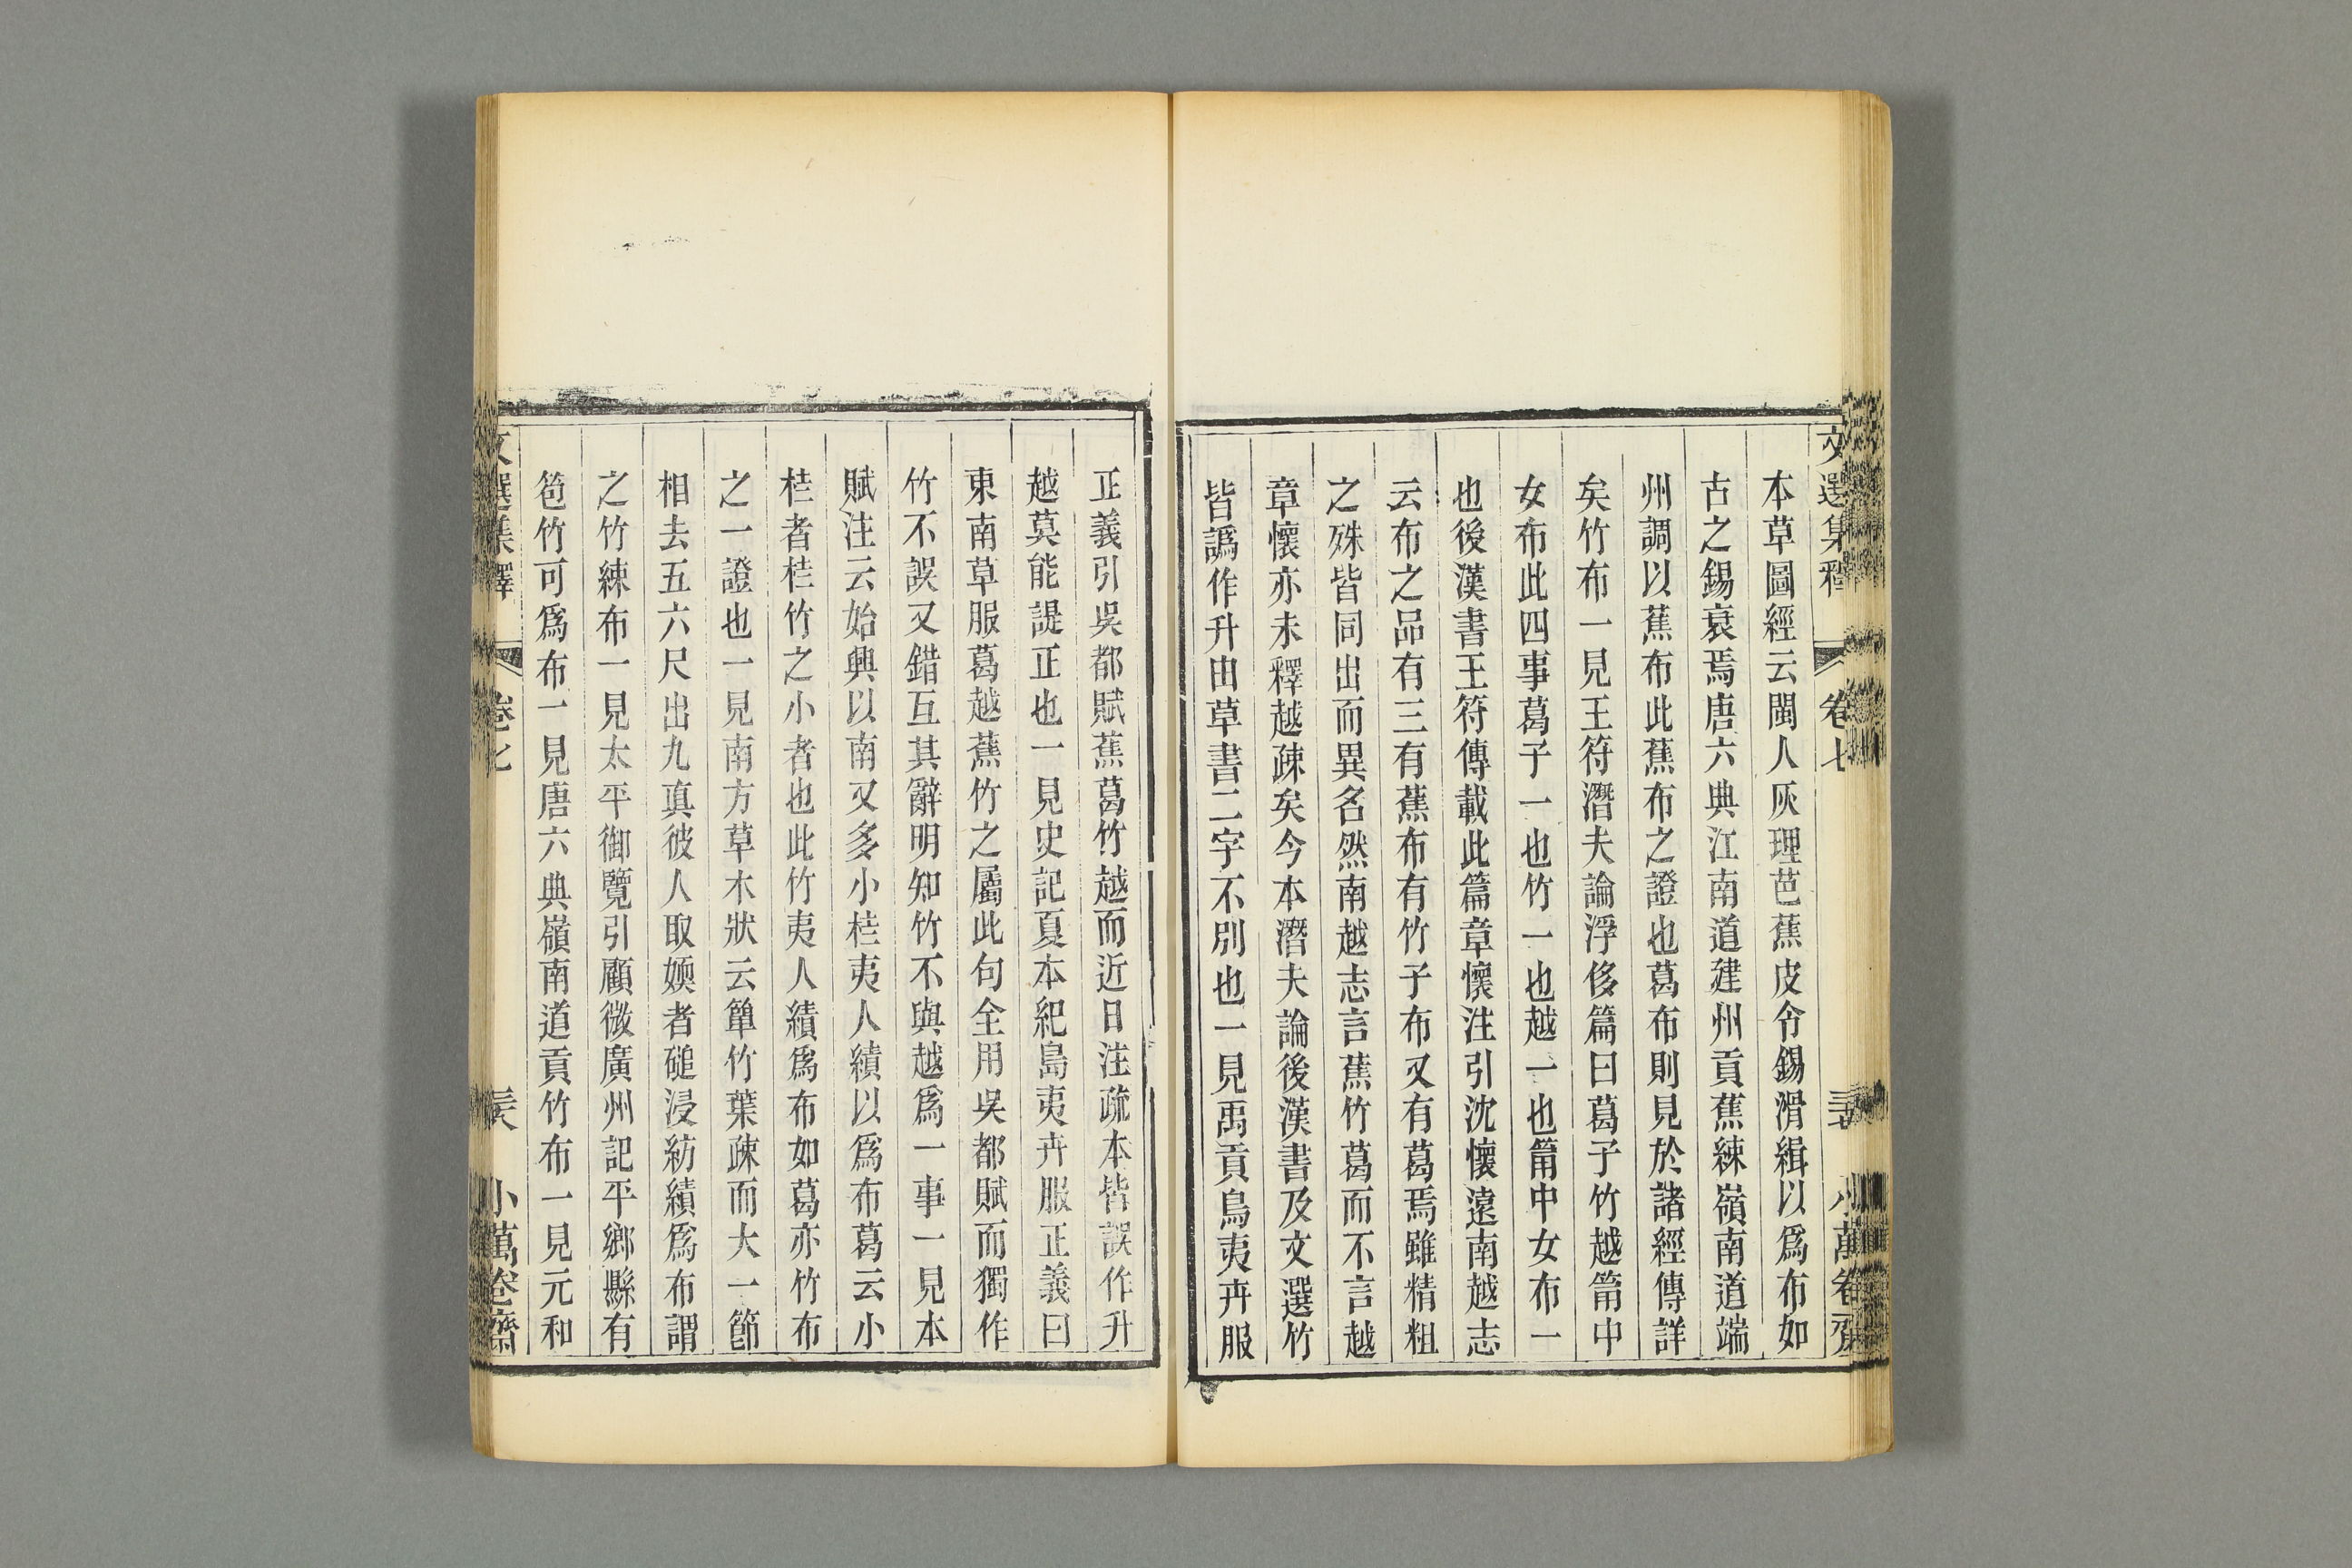 文選集釋 卷七 小萬卷齋
本草圖經云閩人灰理芭蕉皮令錫滑緝以爲布如
古之錫衰焉唐六典江南道建州貢蕉練嶺南道端
州調以蕉布此蕉布之證也葛布則見於諸經傳詳
矣竹布一見王符潛夫論浮侈篇曰葛子竹越筩中
女布此四事葛子一也竹一也越一也筩中女布一
也後漢書王符傳載此篇章懷注引沈懷遠南越志
云布之品有三有蕉布有竹子布又有葛焉雖精粗
之殊皆同出而異名然南越志言蕉竹葛而不言越
章懷亦未釋越疎矣今本潛夫論後漢書及文選竹
皆譌作升由草書二字不別也一見禹貢鳥夷卉服
正義引吳都賦蕉葛竹越而近日注疏本皆誤作升
越莫能諟正也一見史記夏本紀島夷卉服正義曰
東南草服葛越蕉竹之屬此句全用吳都賦而獨作
竹不誤又錯互其辭明知竹不與越爲一事一見本
賦注云始興以南又多小桂夷人績以爲布葛云小
桂者桂竹之小者也此竹夷人績爲布如葛亦竹布
之一證也一見南方草木狀云簞竹葉疎而大一節
相去五六尺出九眞彼人取嫰者磓浸紡績爲布謂
之竹練布一見太平御覽引顧微廣州記平鄉縣有
䈏竹可爲布一見唐六典嶺南道貢竹布一見元和
文選集釋 卷七 小萬卷齋